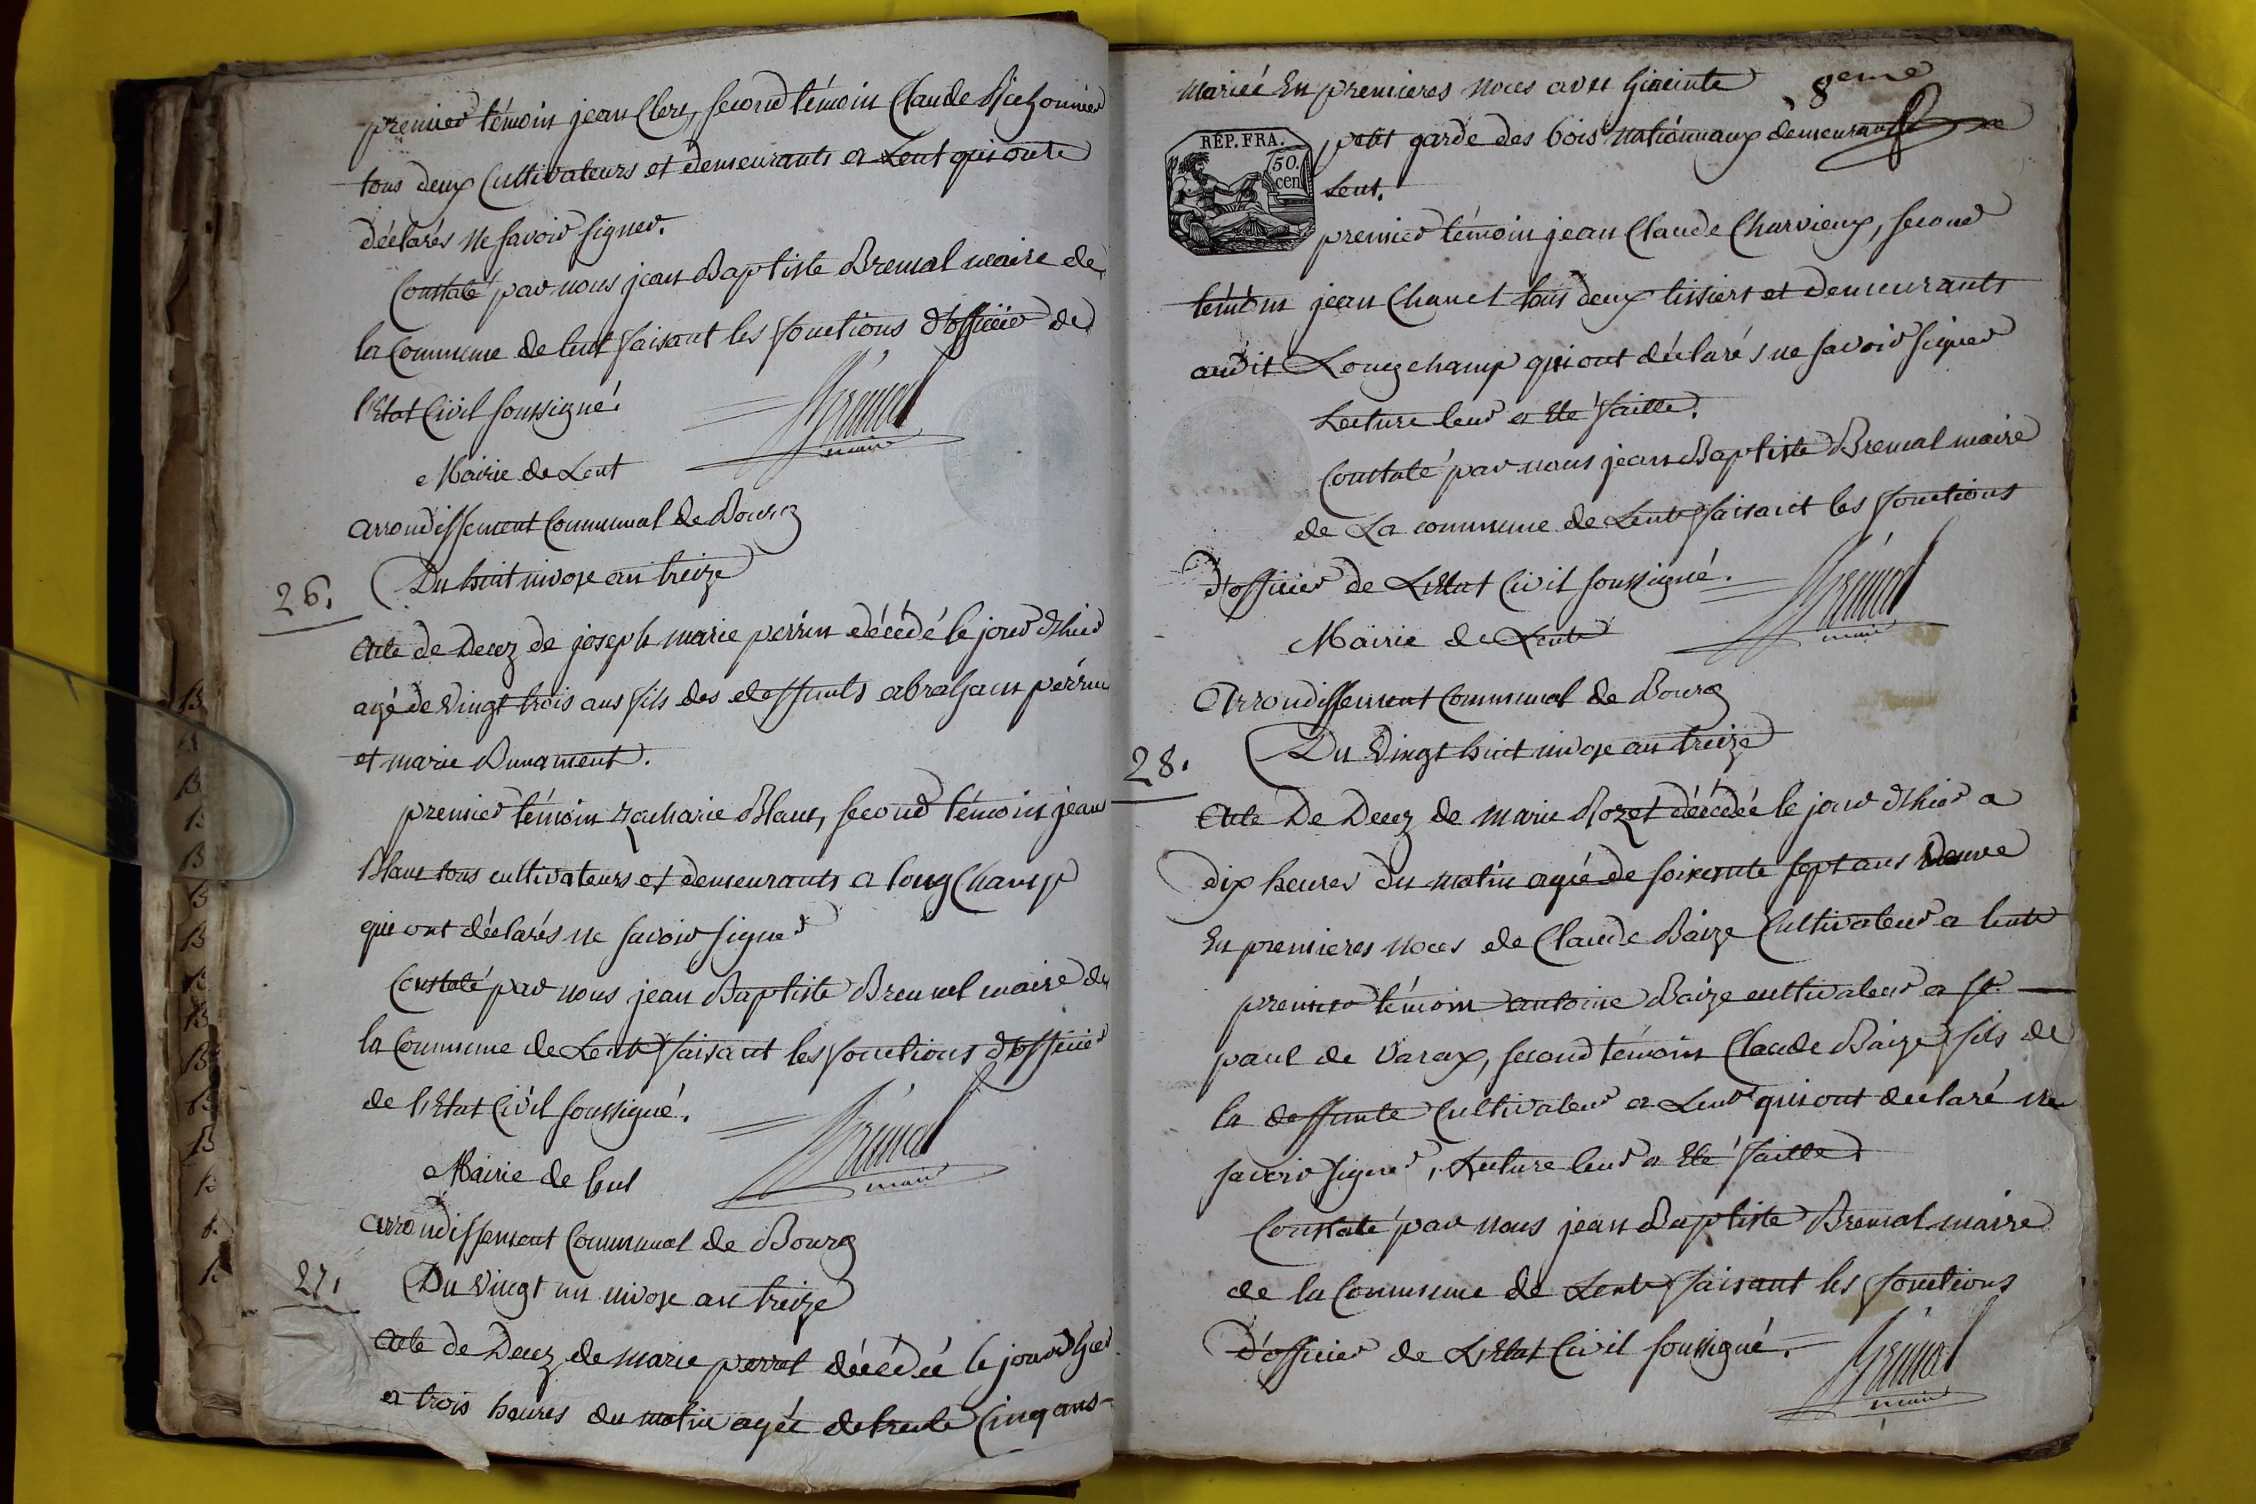 premier témoin jean Clerc, second témoin Claude Michonnier
tous deux Cultivateurs et demeurants a Lent qui ont
déclarés ne savoir signer.
Constaté par nous jean Baptiste Bremal maire de
la Commune de lent faisant les fonctions d'officier de
l'Etat Civil soussigné.
Brémal
maire
Mairie de Lent
arrondissement Communal de Bourg
26.
Du huit nivose an treize
Acte de Decez de joseph marie perrin décédé le jour d'hier
agé de vingt trois ans fils des deffunts abraham perrin
et marie Dunament.
premier témoin zacharie Blanc, second témoin jean
Blanc tous cultivateurs et demeurants a long Champ
qui ont déclarés ne savoir signer
Constaté par nous jean Baptiste Bremal maire de
la Commune de Lent faisant les fonctions d'officier
de l'Etat Civil soussigné.
Brémal
maire
Mairie de lent
arrondissement Communal de Bourg
27.
Du vingt un nivose an treize
Acte de Decez de marie perret décédée le jour d'hier
a trois heures du matin agée de trente Cinq ans
8eme
mariée En premieres noces avec Giacinte
REP. FRA.
50.
cen
petit garde des bois nationnaux demeurant a
Lent.
premier témoin jean Claude Charvieux, second
témoin jean Chanel tous deux tissiers et demeurants
audit Longchamp qui ont déclarés ne savoir signer
Lecture leur a Eté faitte.
Constaté par nous jean Baptiste Bremal maire
de La commune de Lent faisant les fonctions
d'officier de L'Etat Civil soussigné.
Brémal
maire
Mairie de Lent
Arrondissement Communal de Bourg
28.
Du Vingt huit nivose an treize
Acte De Decez de Marie Rozet décédée le jour d'hier a
dix heures du matin agée de soixante sept ans veuve
En premieres noces de Claude Baize Cultivateur a lent
premier témoin antoine Baize cultivateur a St.
paul de varax, second témoin Claude Baize fils de
la deffunte Cultivateur a Lent qui ont déclaré ne
savoir signer, Lecture leur a Eté faitte.
Constaté par nous jean Baptiste Bremal maire
de la Commune de Lent faisant les fonctions
d'officier de L'Etat Civil soussigné.
Brémal
maire